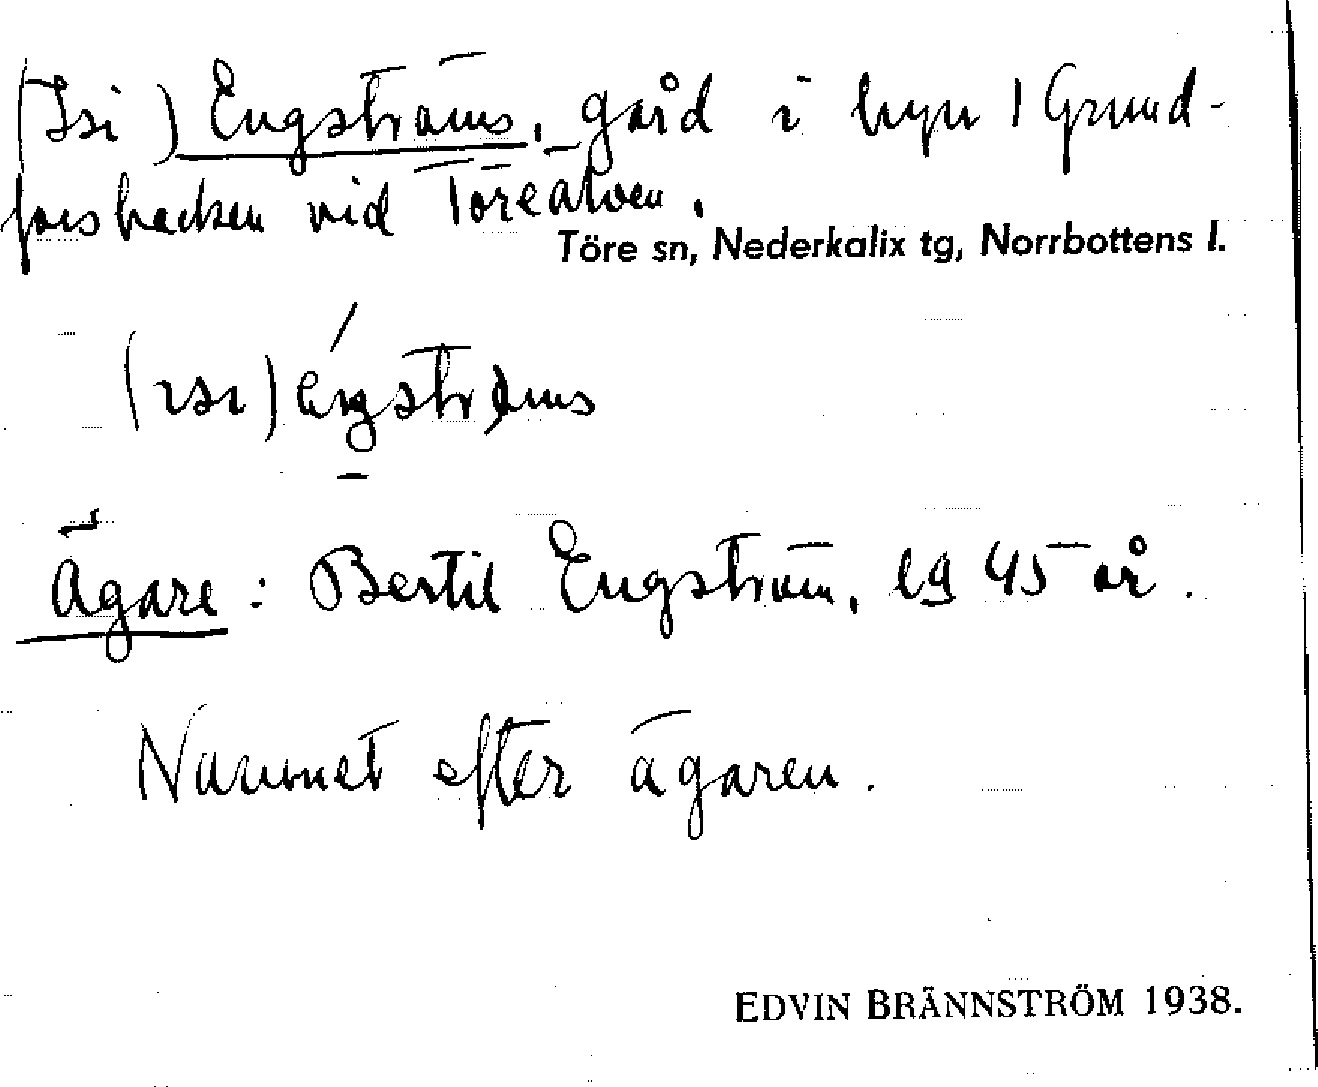 (Isi) Engströms, gård i byn Grund-
forsbacken vid Töreälven.
Töre sn, Nederkalix tg, Norrbottens l.
(ɪsɪ) éŋstrøms
Ägare: Bertil Engström, eg 45 år.
Namnet efter ägaren.
EDVIN BRÄNNSTRÖM 1938.